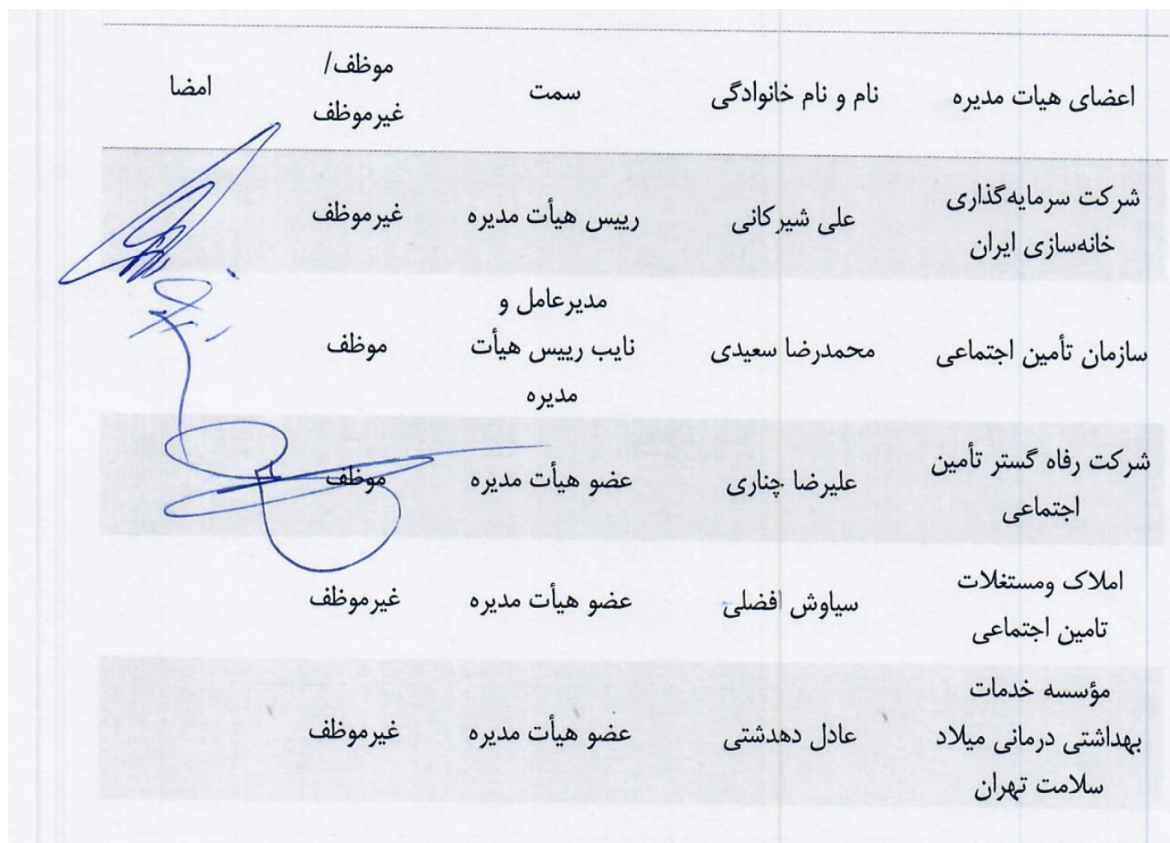 اعضای هیات مدیره نام و نام خانوادگی سمت موظف/ غیرموظف امضا
شرکت سرمایه‌گذاری
خانه‌سازی ایران علی شیرکانی رییس هیأت مدیره غیرموظف
سازمان تأمین اجتماعی محمدرضا سعیدی مدیرعامل و
نایب رییس هیأت
مدیره موظف
شرکت رفاه گستر تأمین
اجتماعی علیرضا چناری عضو هیأت مدیره موظف
املاک ومستغلات
تامین اجتماعی سیاوش افضلی عضو هیأت مدیره غیرموظف
مؤسسه خدمات
بهداشتی درمانی میلاد
سلامت تهران عادل دهدشتی عضو هیأت مدیره غیرموظف